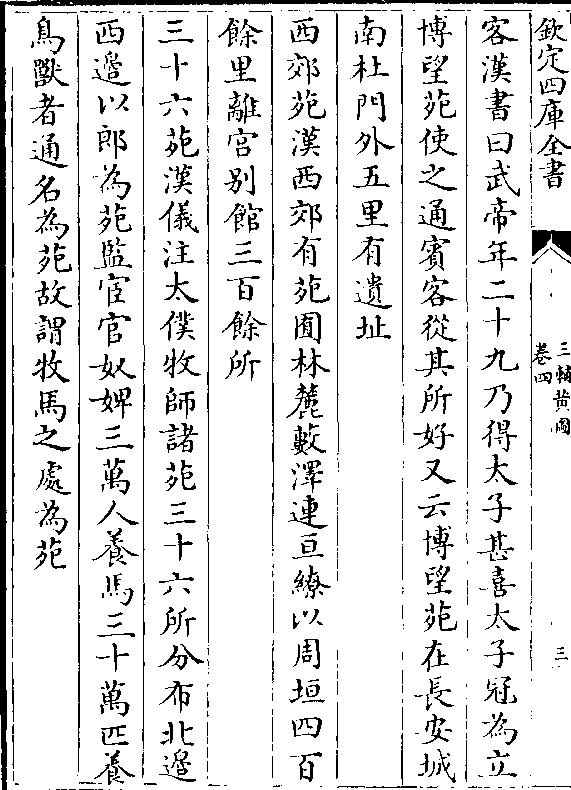 欽定四庫全書
三輔黄圖
卷四
三
客漢書曰武帝年二十九乃得太子甚喜太子冠為立
博望苑使之通賓客從其所好又云博望苑在長安城
南杜門外五里有遺址
西郊苑漢西郊有苑囿林麓藪澤連亘繚以周垣四百
餘里離宫别館三百餘所
三十六苑漢儀注太僕牧師諸苑三十六所分布北邉
西邉以郎為苑監宦官奴婢三萬人養馬三十萬匹養
鳥獸者通名為苑故謂牧馬之處為苑